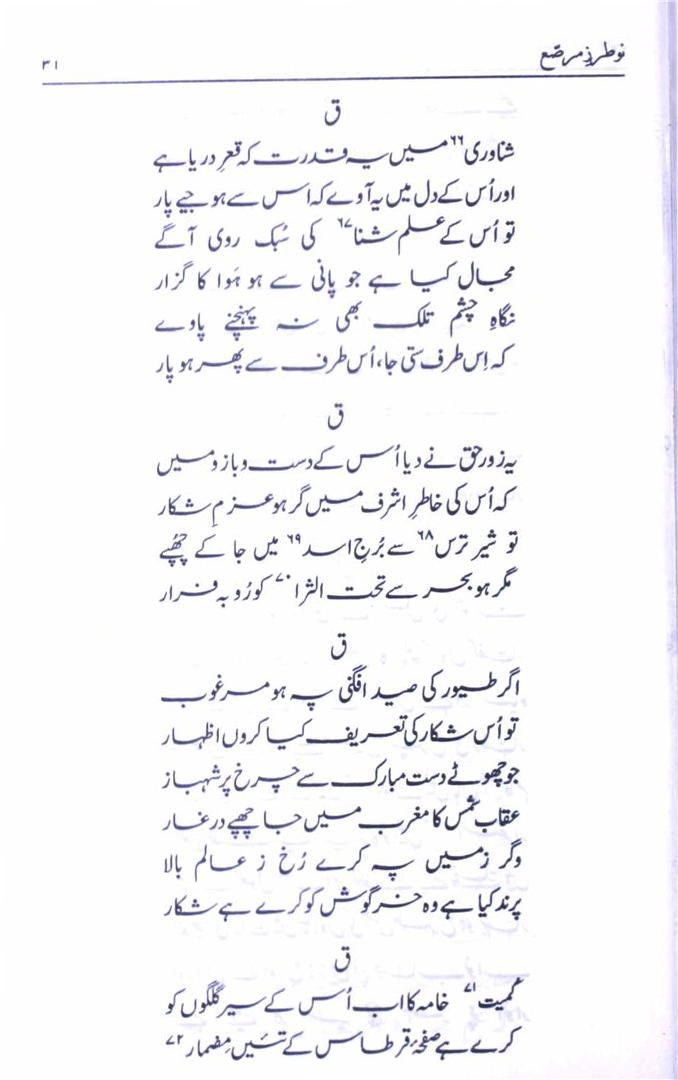 نو طرزِ مرصّع
۳۱
ق
شناوری۶۶ میں یہ قدرت کہ قعرِ دریا ہے
اور اُس کے دل میں یہ آوے کہ اس سے ہو جیے پار
تو اُس کے علمِ شنا۶۷ کی سُبک روی آگے
مجال کیا ہے جو پانی سے ہو ہَوا کا گزار
نگاہِ چشم تلک بھی نہ پہنچنے پاوے
کہ اِس طرف ستی جا، اُس طرف سے پھر ہو پار
ق
یہ زور حق نے دیا اُس کے دست و بازو میں
کہ اُس کی خاطرِ اشرف میں گر ہو عزمِ شکار
تو شیر ترس۶۸ سے بُرجِ اسد۶۹ میں جا کے چُھپے
مگر ہو بحر سے تحت الثرا۷۰ کو رُو بہ فرار
ق
اگر طیور کی صید افگنی پہ ہو مرغوب
تو اُس شکار کی تعریف کیا کروں اظہار
جو چھوٹے دست مبارک سے چرخ پر شہباز
عقاب شمس کا مغرب میں جا چھپے در غار
وگر زمیں پہ کرے رُخ ز عالم بالا
پرند کیا ہے وہ خرگوش کو کرے ہے شکار
ق
کُمیت۷۱ خامہ کا اب اُس کے سیر گلگوں کو
کرے ہے صفحۂ قرطاس کے تئیں مِضمار۷۲